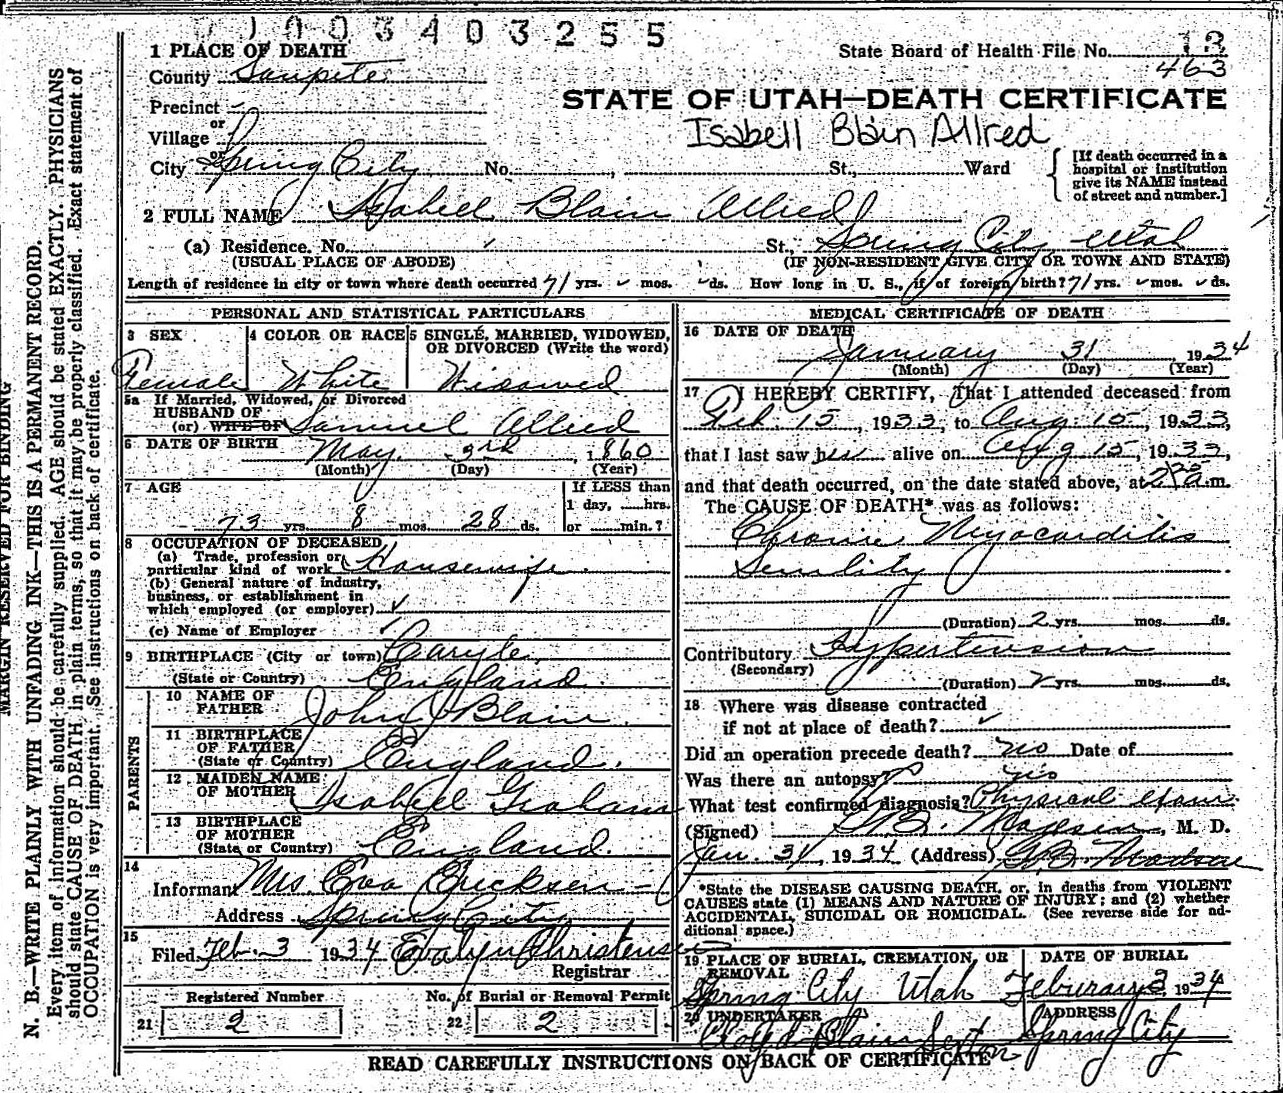 1003403255
1 PLACE OF DEATH
State Board of Health File No. 13
County Sanpete
463
STATE OF UTAH—DEATH CERTIFICATE
Precinct
or
Village
Isabell Blain Allred
or
City Spring City No. , St., Ward
[If death occurred in a
hospital or institution
give its NAME instead
of street and number.]
2 FULL NAME Isabell Blain Allred
(a) Residence. No. St. Spring City Utah
(USUAL PLACE OF ABODE) (IF NON-RESIDENT GIVE CITY OR TOWN AND STATE)
Length of residence in city or town where death occurred 71 yrs. mos. ds. How long in U. S., if of foreign birth? 71 yrs. mos. ds.
PERSONAL AND STATISTICAL PARTICULARS
3 SEX
Female
4 COLOR OR RACE
White
5 SINGLE, MARRIED, WIDOWED,
OR DIVORCED (Write the word)
Widowed
5a If Married, Widowed, or Divorced
HUSBAND OF
(or) WIFE OF Samuel Allred
6 DATE OF BIRTH May 3rd, 1860
(Month) (Day) (Year)
7 AGE
73 yrs. 8 mos. 28 ds.
If LESS than
1 day, ......hrs.
or ......min.?
8 OCCUPATION OF DECEASED
(a) Trade, profession or
particular kind of work Housewife
(b) General nature of industry,
business, or establishment in
which employed (or employer)
(c) Name of Employer
9 BIRTHPLACE (City or town) Caryle
(State or Country) England
PARENTS
10 NAME OF
FATHER John Blain
11 BIRTHPLACE
OF FATHER
(State or Country) England.
12 MAIDEN NAME
OF MOTHER Isabell Graham
13 BIRTHPLACE
OF MOTHER
(State or Country) England.
14
Informant Mrs. Eva Ericksen
Address Spring City
15
Filed Feb. 3 1934 Evalyn Christensen
Registrar
Registered Number
21 2
No. of Burial or Removal Permit
22 2
MEDICAL CERTIFICATE OF DEATH
16 DATE OF DEATH
January 31 1934
(Month) (Day) (Year)
17 I HEREBY CERTIFY, That I attended deceased from
Feb. 15, 1933, to Aug. 15, 1933,
that I last saw her alive on Aug 15, 1933,
and that death occurred, on the date stated above, at a.m.
The CAUSE OF DEATH* was as follows:
Chronic Myocarditis
Senility
(Duration) 2 yrs. mos. ds.
Contributory Hypertension
(Secondary)
(Duration) yrs. mos. ds.
18 Where was disease contracted
if not at place of death?
Did an operation precede death? no Date of
Was there an autopsy? no
What test confirmed diagnosis? Physical Exam.
(Signed) G.B. Madsen, M. D.
Jan. 31, 1934 (Address) G.B. Madsen
*State the DISEASE CAUSING DEATH, or, in deaths from VIOLENT
CAUSES state (1) MEANS AND NATURE OF INJURY; and (2) whether
ACCIDENTAL, SUICIDAL OR HOMICIDAL. (See reverse side for ad-
ditional space.)
19 PLACE OF BURIAL, CREMATION, OR
REMOVAL
Spring City Utah
DATE OF BURIAL
Feburary 3, 1934
20 UNDERTAKER
Lloyd Blain Sexton
ADDRESS
Spring City
READ CAREFULLY INSTRUCTIONS ON BACK OF CERTIFICATE
MARGIN RESERVED FOR BINDING
N. B.—WRITE PLAINLY WITH UNFADING INK—THIS IS A PERMANENT RECORD.
Every item of information should be carefully supplied. AGE should be stated EXACTLY. PHYSICIANS
should state CAUSE OF DEATH in plain terms, so that it may be properly classified. Exact statement of
OCCUPATION is very important. See instructions on back of certificate.